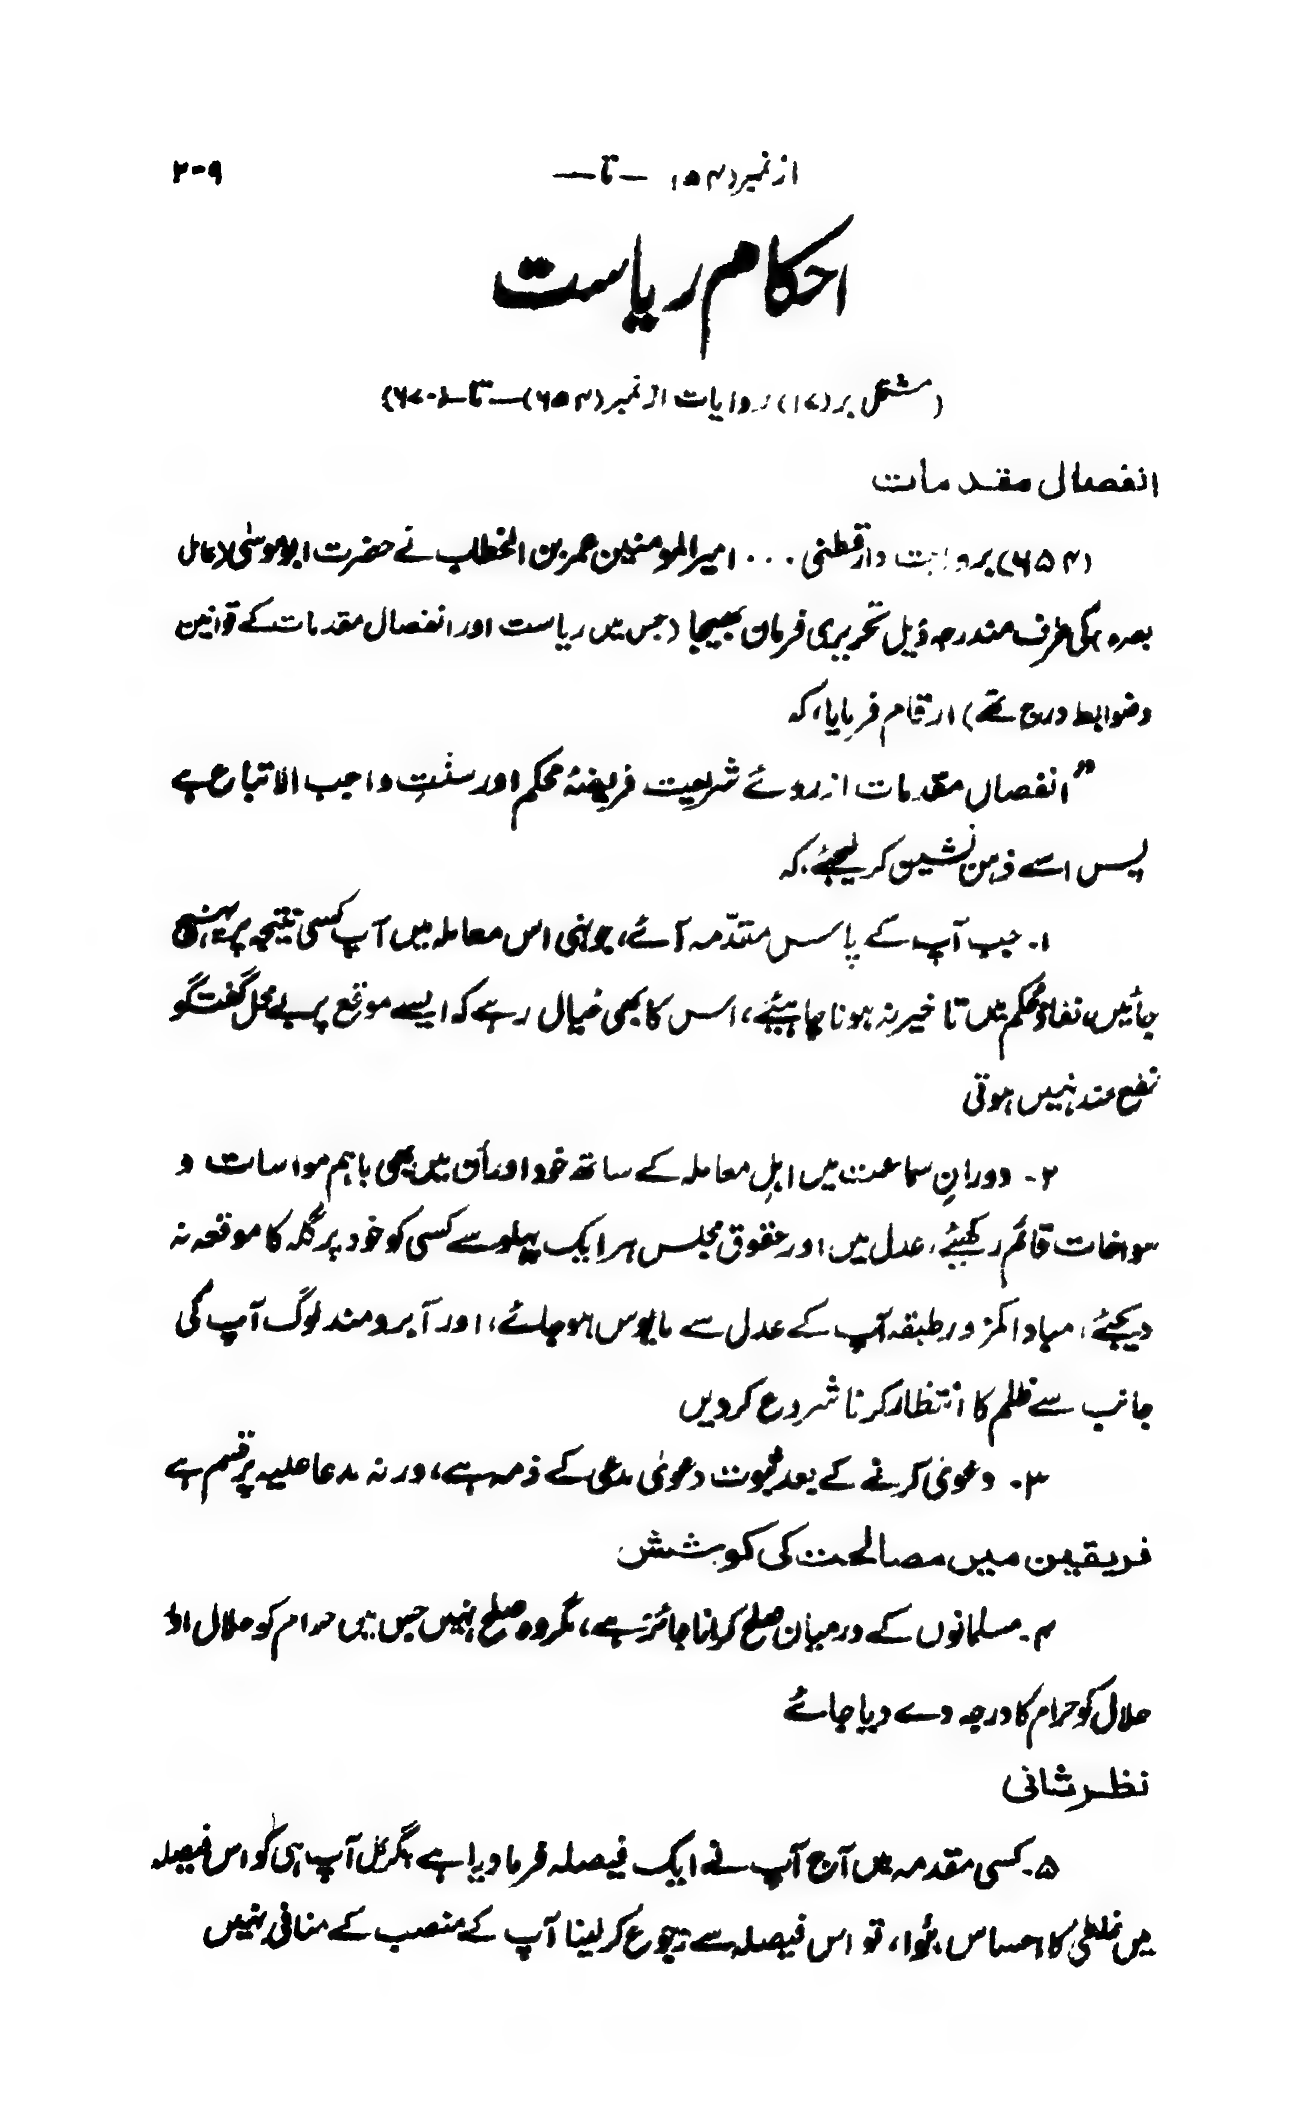 از نمبر (۱۵۴ — تا — ۲۰۹
احکام ریاست
(مشتمل بر (۱۷) روایات از نمبر (۶۵۴) — تا — (۶۷۰)
انفصال مقدمات
(۶۵۴) بروایت دارقطنی ... امیر المومنین عمر بن الخطاب نے حضرت ابو موسیٰ (عامل
بصرہ) کی طرف مندرجہ ذیل تحریری فرمان بھیجا (جس میں ریاست اور انفصال مقدمات کے قوانین
وضوابط درج تھے) ارقام فرمایا، کہ
"انفصال مقدمات ازروئے شریعت فریضۂ محکم اور سنتِ واجب الاتباع ہے
پس اسے ذہن نشین کر لیجئے کہ
۱۔ جب آپ کے پاس مقدّمہ آئے، جونہی اس معاملہ میں آپ کسی نتیجہ پر پہنچ
جائیں، نفاذ حکم میں تاخیر نہ ہونا چاہیئے، اس کا بھی خیال رہے کہ ایسے موقع پر بے محل گفتگو
نفع مند نہیں ہوتی
۲۔ دورانِ سماعت میں اہلِ معاملہ کے ساتھ خود اور اُن میں بھی باہم مواسات و
مواخات قائم رکھیئے، عدل میں اور حقوق مجلس ہر ایک پہلو سے کسی کو خود پر گلہ کا موقعہ نہ
دیجئے، مبادا کمزور طبقہ آپ کے عدل سے مایوس ہو جائے، اور آبرو مند لوگ آپ کی
جانب سے ظلم کا انتظار کرنا شروع کر دیں
۳۔ دعویٰ کرنے کے بعد ثبوت دعویٰ مدعی کے ذمہ ہے، ورنہ مدعا علیہ پر قسم ہے
فریقین میں مصالحت کی کوشش
۴۔ مسلمانوں کے درمیان صلح کرانا جائز ہے، مگر وہ صلح نہیں جس میں حرام کو حلال اور
حلال کو حرام کا درجہ دے دیا جائے
نظر ثانی
۵۔ کسی مقدمہ میں آج آپ نے ایک فیصلہ فرما دیا ہے مگر کل آپ ہی کو اس فیصلہ
میں غلطی کا احساس ہُوا، تو اس فیصلہ سے رجوع کر لینا آپ کے منصب کے منافی نہیں